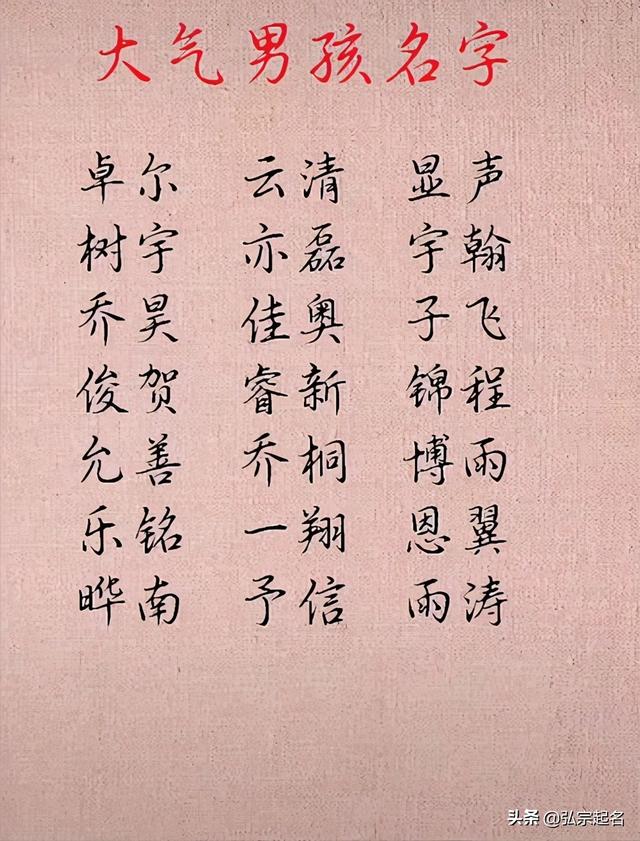 大气男孩名字
卓尔 云清 显声
树宇 亦磊 宇翰
乔昊 佳奥 子飞
俊贺 睿新 锦程
允善 乔桐 博雨
乐铭 一翔 恩翼
晔南 予信 雨涛
头条 @弘宗起名